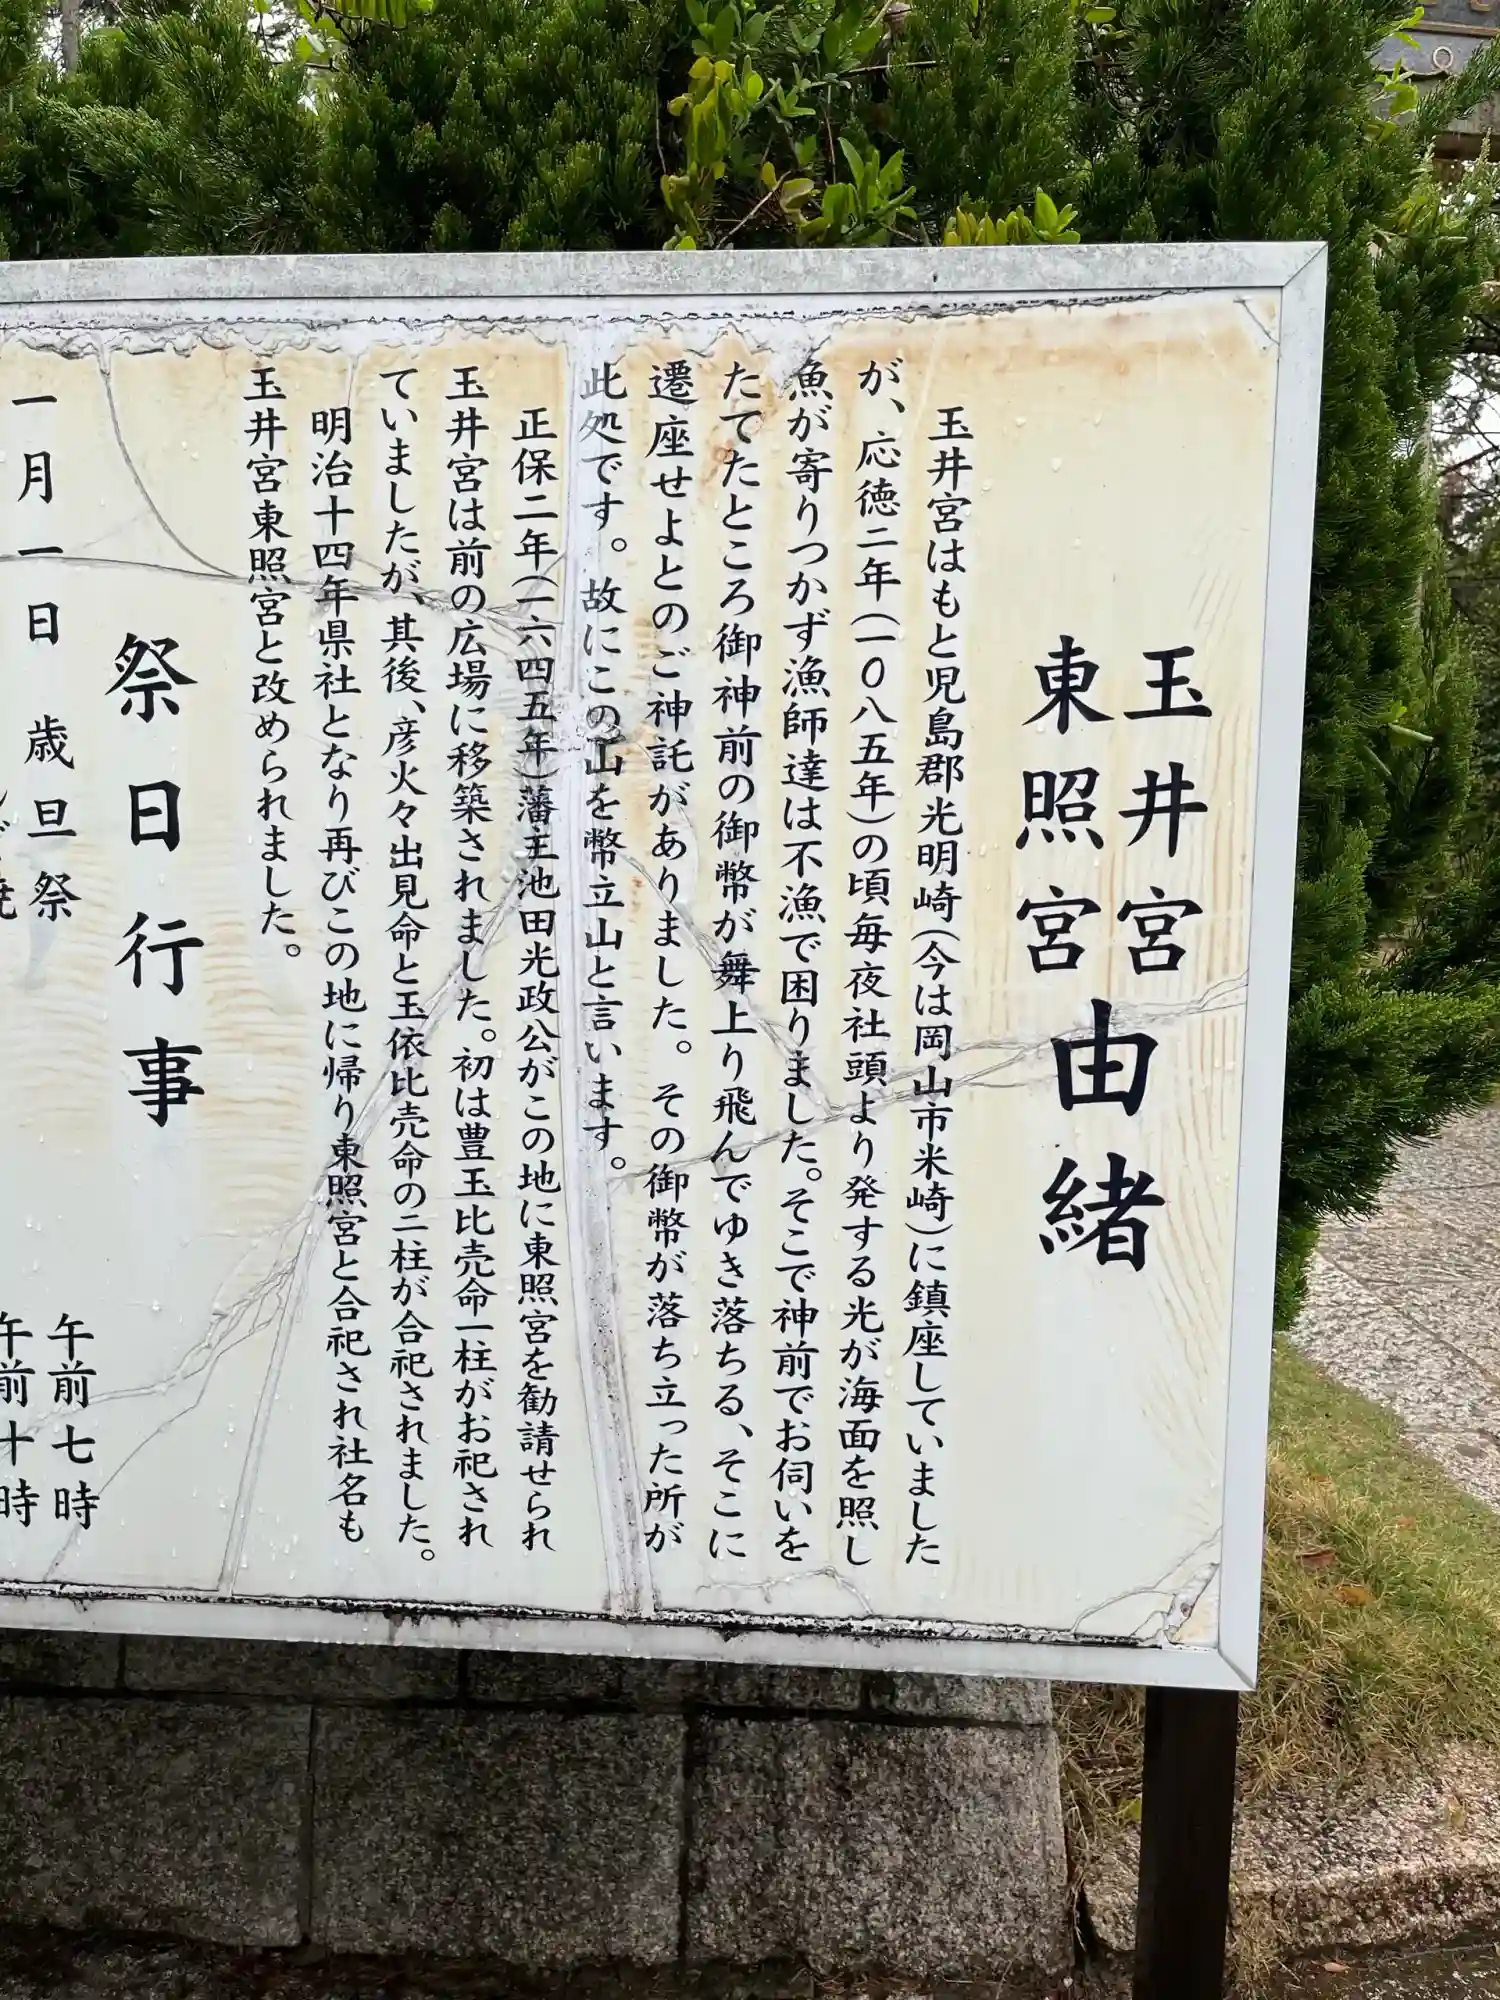 玉井宮
東照宮
由緒
玉井宮はもと児島郡光明崎(今は岡山市米崎)に鎮座していました
が、応徳二年(一〇八五年)の頃毎夜社頭より発する光が海面を照し
魚が寄りつかず漁師達は不漁で困りました。そこで神前でお伺いを
たてたところ御神前の御幣が舞上り飛んでゆき落ちる、そこに
遷座せよとのご神託がありました。その御幣が落ち立った所が
此処です。故にこの山を幣立山と言います。
正保二年(一六四五年)藩主池田光政公がこの地に東照宮を勧請せられ
玉井宮は前の広場に移築されました。初は豊玉比売命一柱がお祀され
ていましたが、其後、彦火々出見命と玉依比売命の二柱が合祀されました。
明治十四年県社となり再びこの地に帰り東照宮と合祀され社名も
玉井宮東照宮と改められました。
祭日行事
一月一日 歳旦祭 午前七時
午前十時